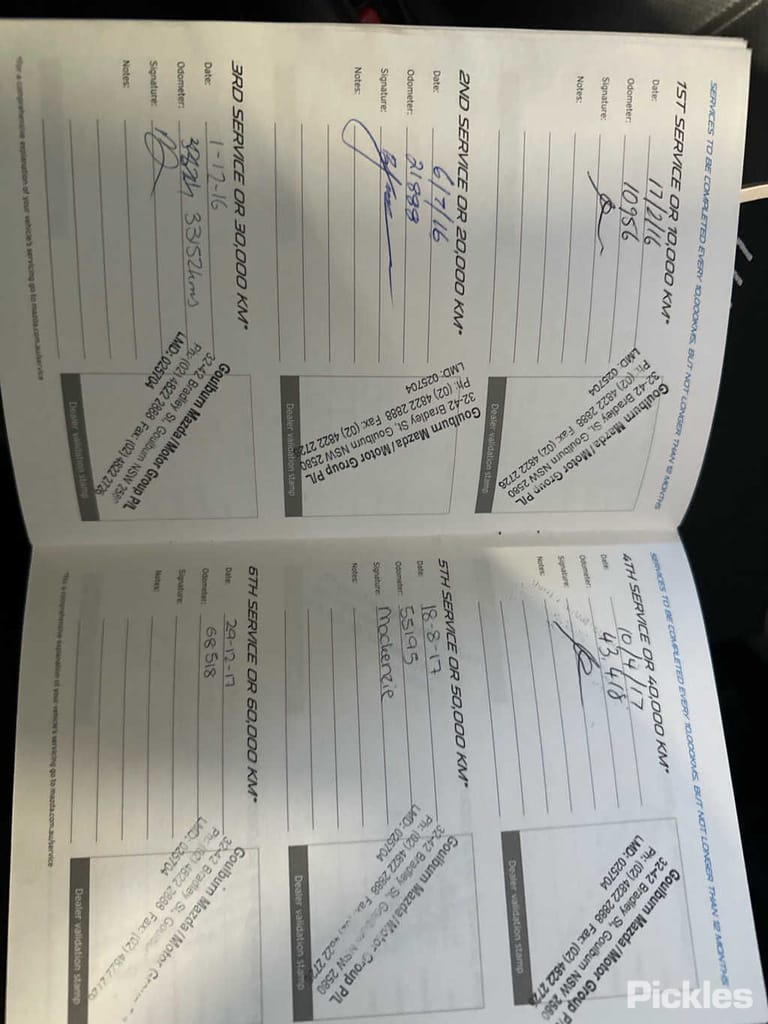 SERVICES TO BE COMPLETED EVERY 10,000KMS, BUT NOT LONGER THAN 12 MONTHS
1ST SERVICE OR 10,000 KM*
Date: 17/2/16
Odometer: 10956
Signature:
Notes:
Goulburn Mazda / Motor Group P/L
32-42 Bradley St, Goulburn NSW 2580
Ph: (02) 4822 2888 Fax: (02) 4822 2726
LMD: 025704
Dealer validation stamp
2ND SERVICE OR 20,000 KM*
Date: 6/7/16
Odometer: 21888
Signature:
Notes:
Goulburn Mazda / Motor Group P/L
32-42 Bradley St, Goulburn NSW 2580
Ph: (02) 4822 2888 Fax: (02) 4822 2726
LMD: 025704
Dealer validation stamp
3RD SERVICE OR 30,000 KM*
Date: 1-12-16
Odometer: 33152kms
Signature:
Notes:
Goulburn Mazda / Motor Group P/L
32-42 Bradley St, Goulburn NSW 258
Ph: (02) 4822 2888 Fax: (02) 4822 2726
LMD: 025704
Dealer validation stamp
*For a comprehensive explanation of your vehicle's servicing go to mazda.com.au/service
SERVICES TO BE COMPLETED EVERY 10,000KMS, BUT NOT LONGER THAN 12 MONTHS
4TH SERVICE OR 40,000 KM*
Date: 10/4/17
Odometer: 43,418
Signature:
Notes:
Goulburn Mazda / Motor Group P/
32-42 Bradley St, Goulburn NSW 2580
Ph: (02) 4822 2888 Fax: (02) 4822 272
LMD: 025704
Dealer validation stamp
5TH SERVICE OR 50,000 KM*
Date: 18-8-17
Odometer: 55195
Signature: Mackenzie
Notes:
Goulburn Mazda / Motor Group P/L
32-42 Bradley St, Goulburn NSW 2580
Ph: (02) 4822 2888 Fax: 4822 272
LMD: 025704
Dealer validation stamp
6TH SERVICE OR 60,000 KM*
Date: 29-12-17
Odometer: 68518
Signature:
Notes:
Goulburn Mazda / Motor
32-42 Bradley St, Goulburn
Ph: (02) 4822 2888 Fax: (02) 4822 2726
LMD: 025704
Dealer validation stamp
*For a comprehensive explanation of your vehicle's servicing go to mazda.com.au/service
Pickles